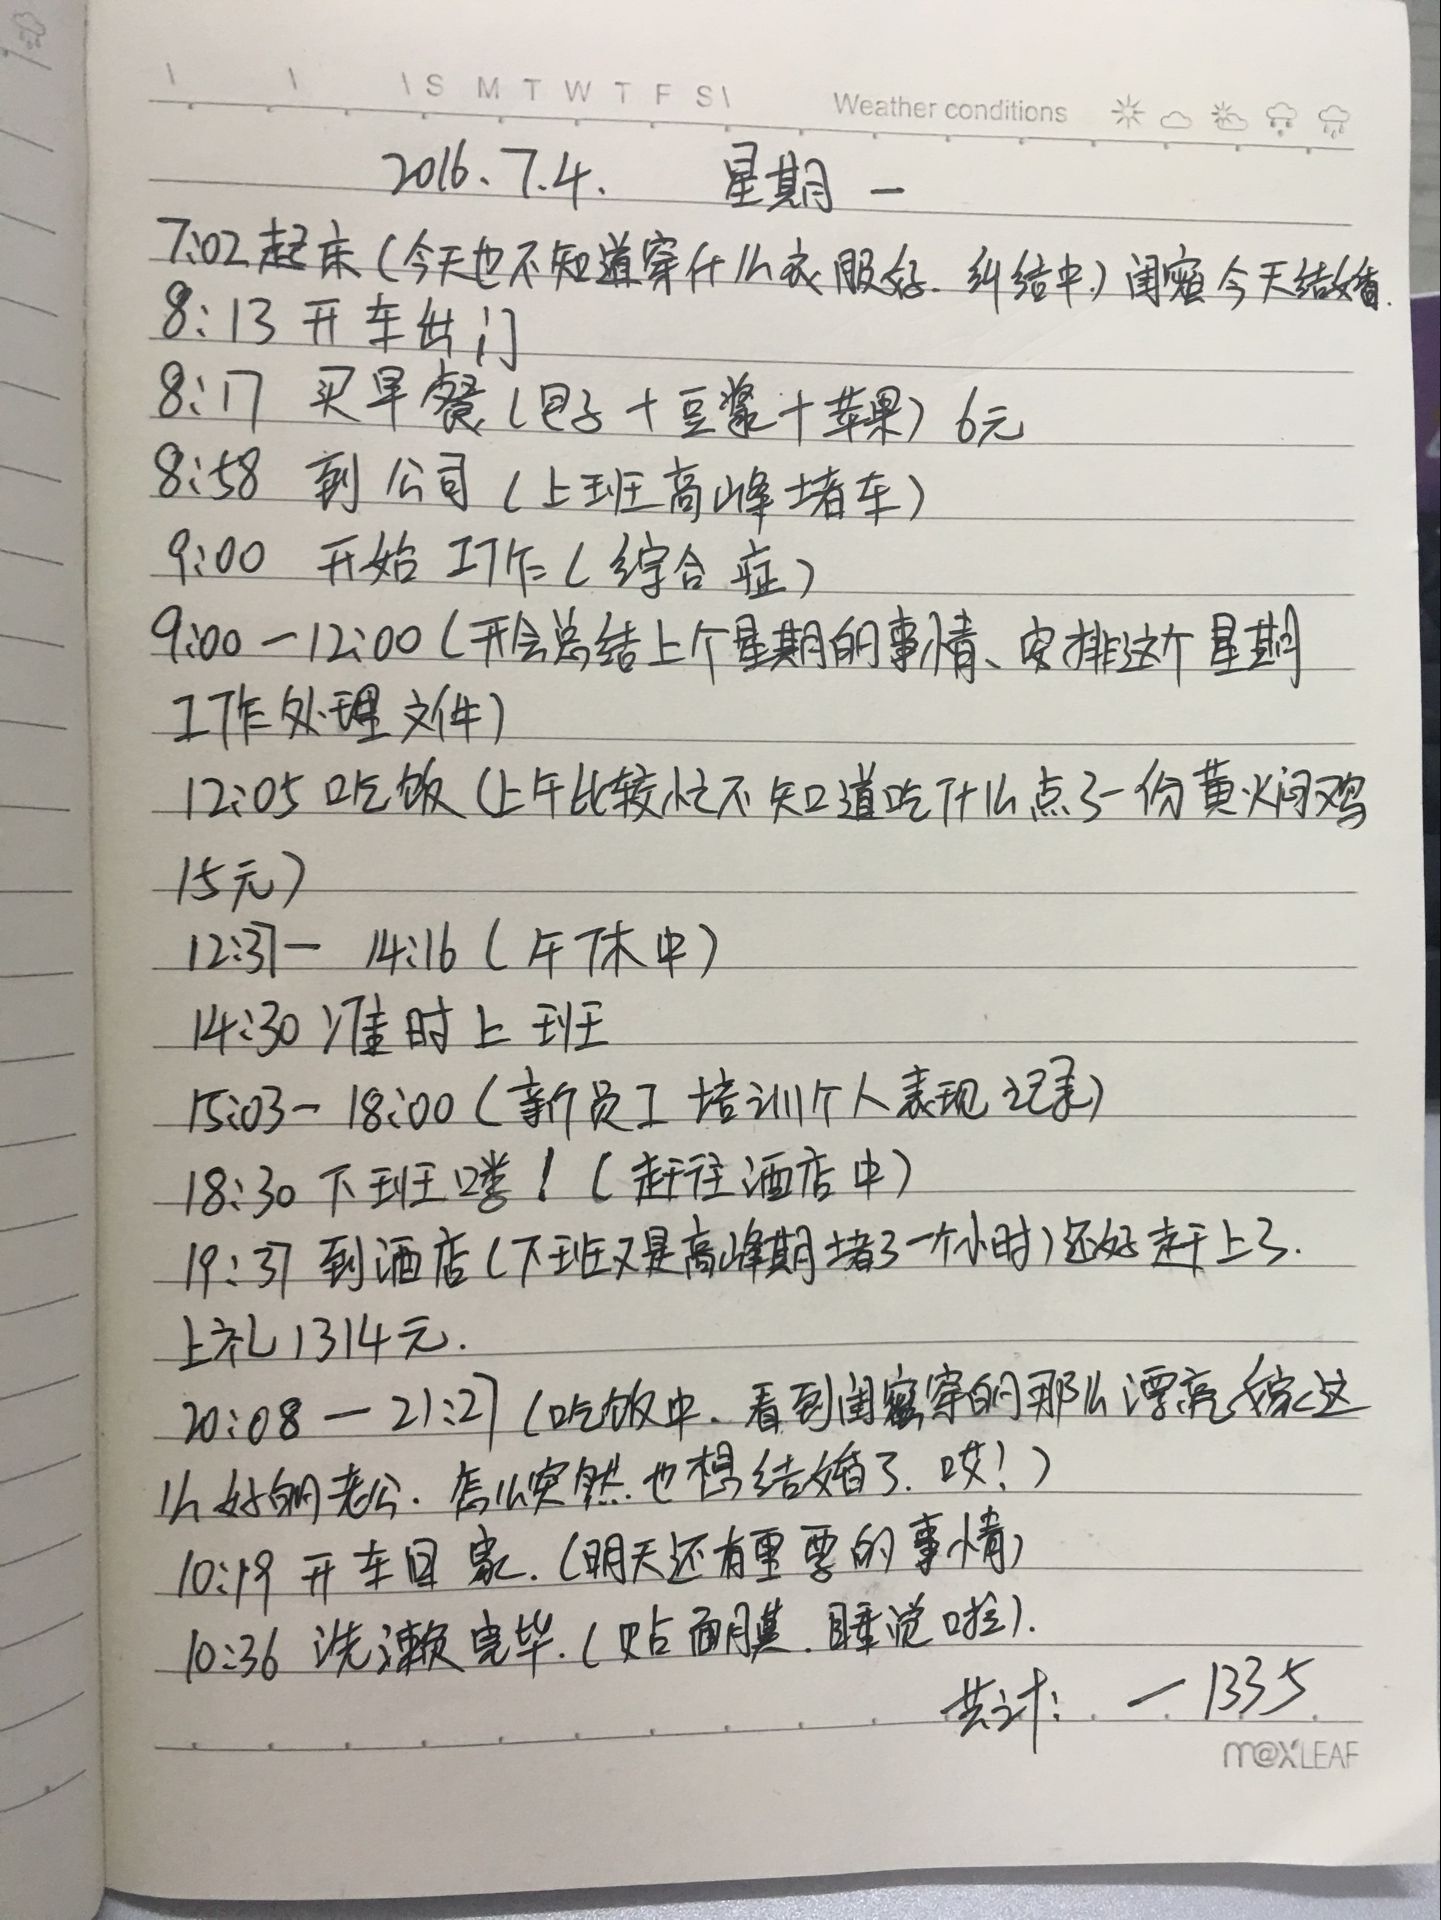 \ \ \ S M T W T F S \ Weather conditions
2016.7.4. 星期一
7:02 起床(今天也不知道穿什么衣服好.纠结中)闺蜜今天结婚.
8:13 开车出门
8:17 买早餐(包子+豆浆+苹果)6元
8:58 到公司(上班高峰堵车)
9:00 开始工作(综合症)
9:00-12:00(开会总结上个星期的事情、安排这个星期
工作处理文件)
12:05 吃饭(上午比较忙不知道吃什么点了一份黄火焖鸡
15元)
12:37- 14:16(午休中)
14:30 准时上班
15:03-18:00(新员工培训个人表现记录)
18:30 下班喽!(赶往酒店中)
19:37 到酒店(下班又是高峰期堵了一个小时)还好赶上了.
上礼1314元.
20:08-21:27(吃饭中.看到闺蜜穿的那么漂亮嫁这
么好的老公.怎么突然也想结婚了.哎!)
10:19 开车回家.(明天还有重要的事情)
10:36 洗漱完毕.(贴面膜.睡觉啦).
共计: -1335
m@x'LEAF